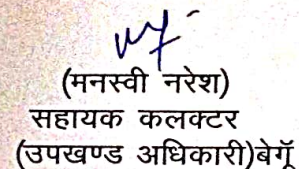 (मनस्वी नरेश)
सहायक कलक्टर
(उपखण्ड अधिकारी)बेगूॅ